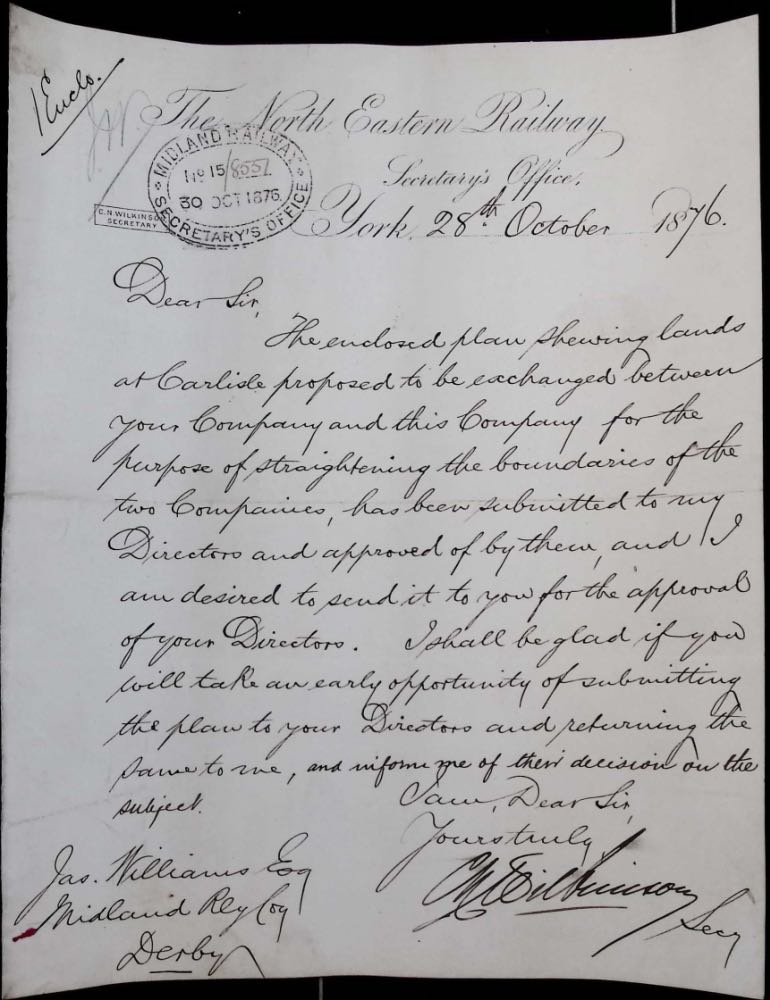 1 Enclo.
The North Eastern Railway
MIDLAND RAILWAY
No 15/8557
30 OCT 1876
SECRETARY'S OFFICE
Secretary's Office,
C.N. WILKINSON
SECRETARY
York, 28th October 1876.
Dear Sir,
The enclosed plan shewing lands
at Carlisle proposed to be exchanged between
your Company and this Company for the
purpose of straightening the boundaries of the
two Companies, has been submitted to my
Directors and approved of by them, and I
am desired to send it to you for the approval
of your Directors. I shall be glad if you
will take an early opportunity of submitting
the plan to your Directors and returning the
same to me, and inform me of their decision on the
subject.
I am, Dear Sir,
Yours truly,
CN Wilkinson
Secy
Jas. Williams Esq
Midland Rly Coy
Derby